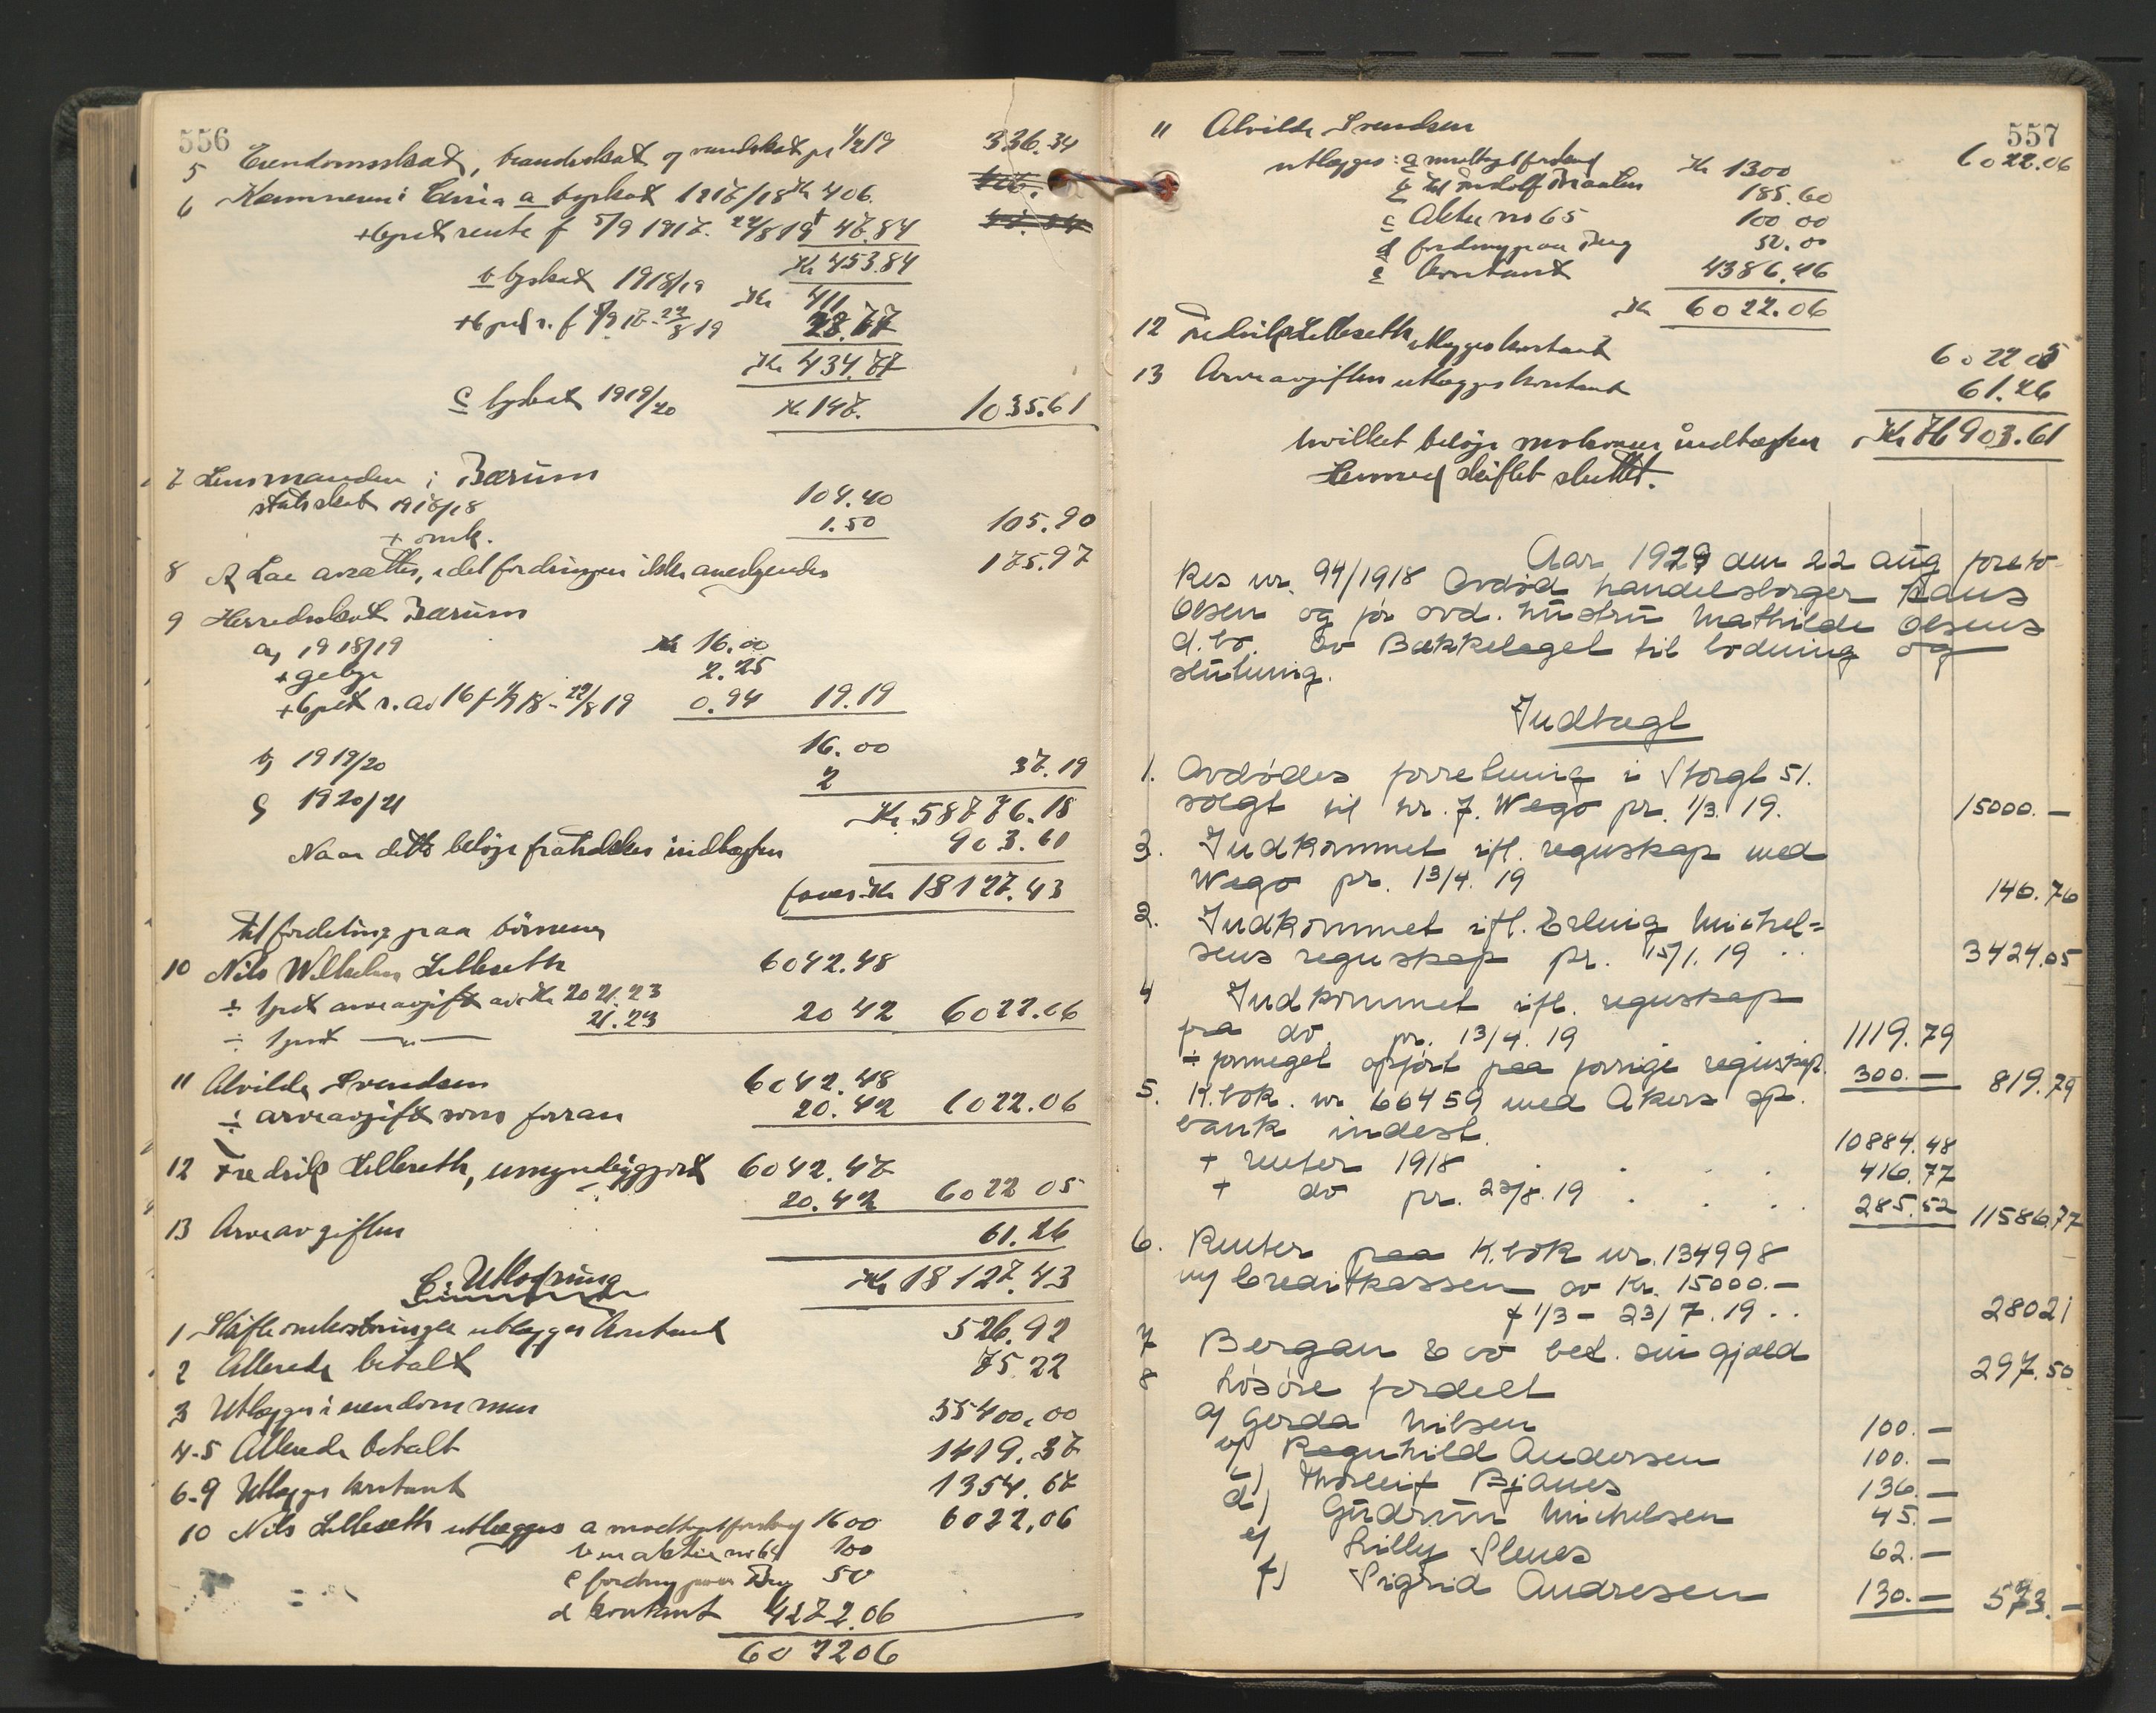 556
5 Eiendomsskat, brandskat og vandskat pr 1/2 19 336.34
6 Kemneren i Xania a byskat 1917/18 Kr 406.
+ 6 pct rente f 5/9 1917. 22/8 19 47.84
Kr 453.84
b byskat 1918/19 Kr 411
+ 6 pct r. f 22/8 19 23.77
Kr 434.77
c byskat 1919/20 Kr 147. 1035.61
7 Lensmanden i Bærum
statsskat 104.40
+ omk. 1.50 105.90
8 A Lae avsættes, idet fordringen ikke anerkjendes 175.97
9 Herredsskat Bærum
a, 1918/19 Kr 16.00
+ gebyr 2.25
+ 6 pct r. av 16 f 18 - 22/8 19 0.94 19.19
b, 1919/20 16.00
c, 1920/21 2 37.19
Kr. 58776.18
Naar dette beløp fratrækkes indtægten 903.61
faaes Kr 18127.43
til fordeling paa børnene
10 Nils Wilhelm Lilleseth 6042.48
÷ 1 pct arveavgift av Kr 2021.23
÷ 1 pct —"— 21.23 20 42 6022.06
11 Alvilde Svendsen 6042.48
÷ arveavgift som foran 20.42 6022.06
12 Fredrik Lilleseth, umyndiggjort 6042.47
20.42 6022 05
13 Arveavgiften 61.26
Kr 18127.43
C. Utlodning
1 Skifteomkostninger utlægges kontant 526.92
2 Allerede betalt 75.22
3 Utlægges i eiendommen 55400.00
4-5 Allerede betalt 1419.37
6-9 Utlægges kontant 1354.67
10 Nils Lilleseth utlægges a mottagt forskud 1600 6022.06
b en aktie no 64 100
c fordring paa Berg 50
d kontant 4272.06
60 2206
557
11 Alvilde Svendsen 6022.06
utlægges: a mottagt forskud Kr 1300
b Rudolf Braaten 185.60
c Aktie no 65 100 00
d fordring paa Berg 50.00
e kontant 4386.46
Kr 6022.06
12 Fredrik Lilleseth utlægges kontant 6022 05
13 Arveavgiften utlægges kontant 61.26
hvilket beløp motsvarer indtægten Kr 76903.61
Hermed skiftet sluttet.
Aar 1929 den 22 aug foreto-
kes nr. 94/1918 Avdød handelsborger Hans
Olsen og før avd. hustru Mathilde Olsens
d.bo. av Bækkelaget til lodning og
slutning.
Indtægt
1. Avdødes forretning i Storgt 51.
solgt til hr. J. Wego pr. 1/3. 19. 15000.—
3. Indkommet ifl. regnskap med
Wego pr. 13/4. 19 146.76
2. Indkommet ifl. Erling Michel=
sens regnskap pr. 15/1. 19 .. 3424.05
4 Indkommet ifl. regnskap
fra do. pr. 13/4. 19 1119.79
÷ formeget opført paa forrige regnskap. 300.— 819.79
5. K.bok. nr 66459 med Akers sp.
bank indest. 10884.48
+ renter 1918 . . . . 416.77
+ do pr. 23/8. 19 . . . 285.52 11586.77
6. Renter paa K.bok nr. 134998
m/ Creditkassen av Kr. 15000.—
f 1/3 - 23/7. 19 .. 28021
7 Bergan & co bet. sin gjæld 297.50
8 Løsøre fordelt
a) Gerda Nilsen 100.—
b) Ragnhild Andersen 100.—
c) Thorleif Bjanes 136.—
d) Gudrun Michelsen 45.—
e) Lilly Stenes 62.—
f) Sigrid Andresen 130.— 573.—